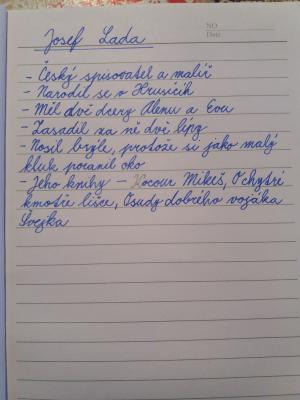 NO
Date
Josef Lada
- Český spisovatel a malíř
- Narodil se v Hrusicích
- Měl dvě dcery Alenu a Evu
- Zasadil za ně dvě lípy
- Nosil brýle, protože si jako malý
kluk poranil oko
- Jeho knihy - Kocour Mikeš, O chytré
kmotře lišce, Osudy dobrého vojáka
Švejka